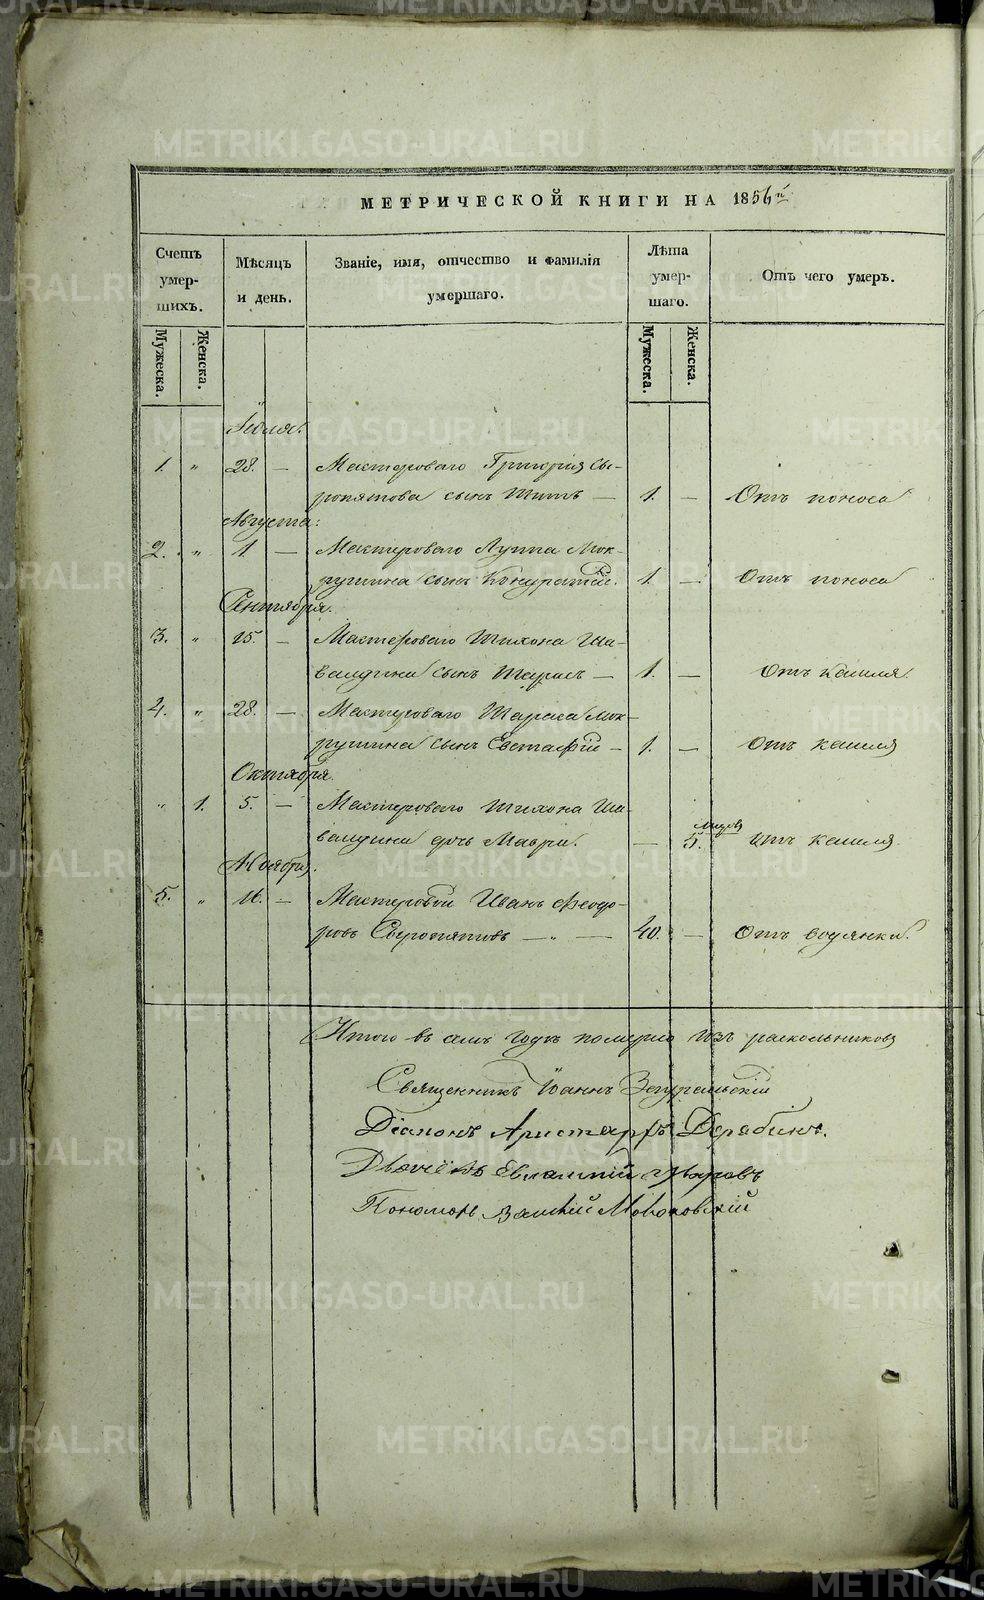 МЕТРИЧЕСКОЙ КНИГИ НА 1856й
Счетъ умер-шихъ.
Мужеска.
Женска.
Мѣсяцъ и день.
Званіе, имя, отчество и фамилія умершаго.
Лѣта умер-шаго.
Мужеска.
Женска.
Отъ чего умеръ.
Іюля.
1. " 28. — Мастероваго Григорія Сы-
ропятова сынъ Титъ — 1. — Отъ поноса
Августа:
2. " 1 — Мастероваго Луппа Мок-
рушина сынъ Кондратій. 1. — Отъ поноса
Сентября.
3. " 15. — Мастероваго Тихона Ша-
валдина сынъ Тарасъ — 1. — Отъ кашля.
4. " 28. — Мастероваго Тараса Мок-
рушина сынъ Евстафій — 1. — Отъ кашля
Октября.
" 1. 5. — Мастероваго Тихона Ша-
валдина дочь Мавра. — 5. Отъ кашля.
Ноября.
5. " 16. — Мастеровой Иванъ Ѳеодо-
ровъ Сыропятовъ — " — 40. — Отъ водянки.
Итого въ семъ годѣ померло изъ раскольниковъ
Священникъ Іоаннъ
Діаконъ Аристархъ Дерябинъ.
Дьячёкъ Евлампій
Пономарь
METRIKI.GASO-URAL.RU